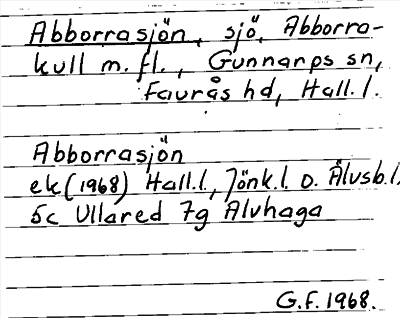 Abborrasjön, sjö, Abborra-
kull m.fl., Gunnarps sn,
Faurås hd, Hall.l.
Abborrasjön
ek (1968) Hall.l., Jönk.l. o. Älvsb.l.
5c Ullared 7g Alvhaga
G.F. 1968.